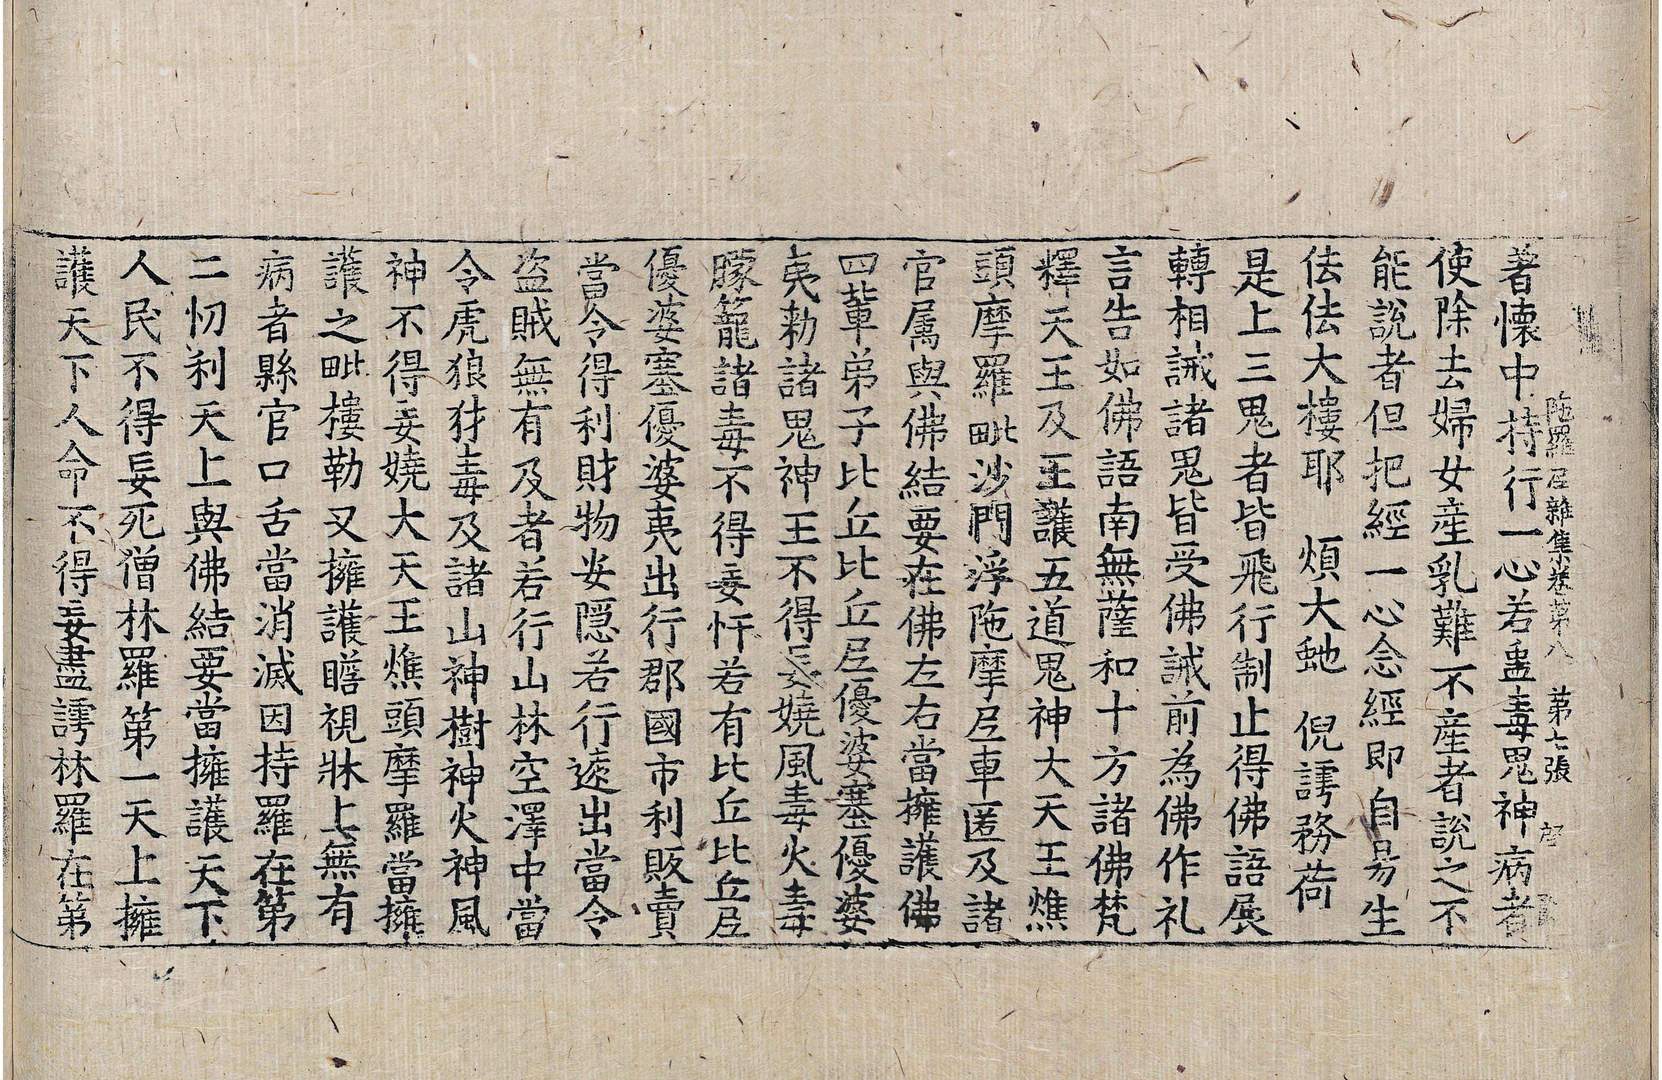 陁羅尼雜集卷第八　第七張
著懷中持行一心若蠱毒鬼神病者
使除去婦女産乳難不産者說之不
能說者但把經一心念經即自易生
佉佉大樓耶　煩大虵　倪謣務荷
是上三鬼者皆飛行制止得佛語展
轉相誡諸鬼皆受佛誡前為佛作礼
言告如佛語南無薩和十方諸佛梵
釋天王及王護五道鬼神大天王燋
頭摩羅毗沙門浮陁摩尼車匿及諸
官属與佛結要在佛左右當擁護佛
四輩弟子比丘比丘尼優婆塞優婆
夷勑諸鬼神王不得妄嬈風毒火毒
朦籠諸毒不得妄忓若有比丘比丘尼
優婆塞優婆夷出行郡國市利販賣
當令得利財物安隱若行遠出當令
盜賊無有及者若行山林空澤中當
令虎狼犲毒及諸山神樹神火神風
神不得妄嬈大天王燋頭摩羅當擁
護之毗樓勒叉擁護瞻視牀上無有
病者縣官口舌當消滅因持羅在第
二忉利天上與佛結要當擁護天下
人民不得妄死僧林羅第一天上擁
護天下人命不得妄盡謣林羅在第